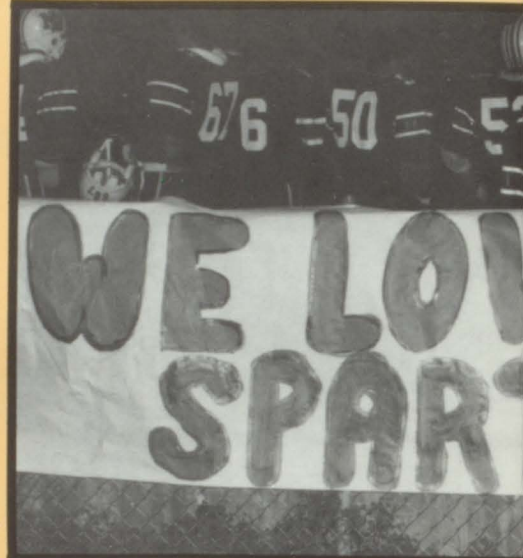 676 50 5
WE LOV
SPART